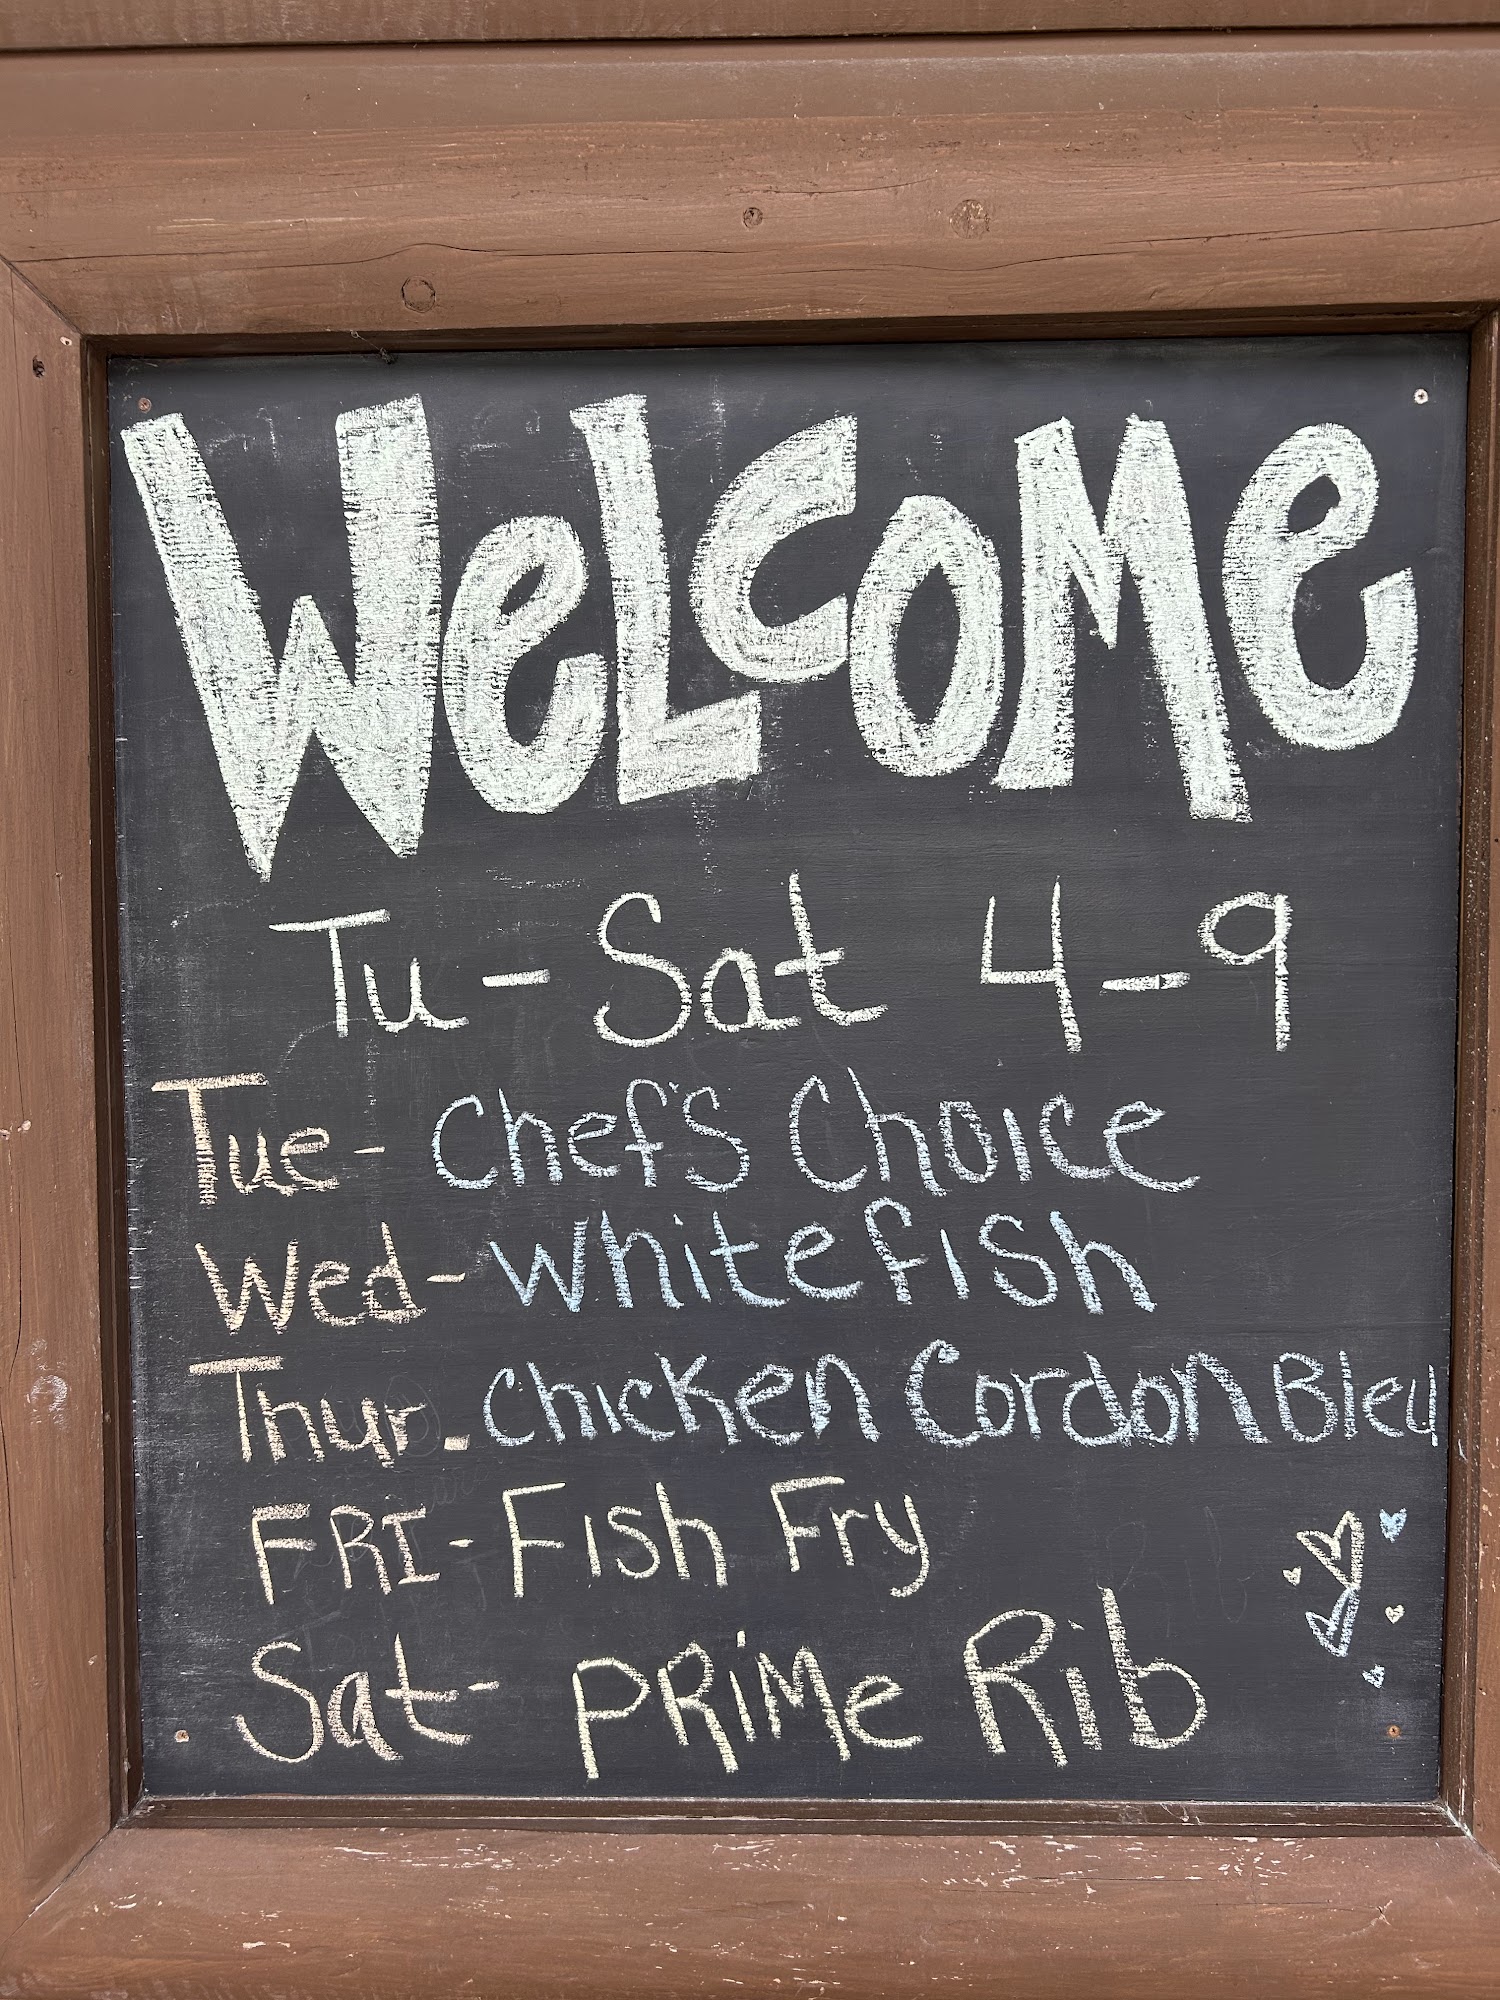 WeLcoMe
Tu - Sat 4-9
Tue - Chef's Choice
Wed - whitefish
Thur. Chicken Cordon Bleu
FRI - Fish Fry
Sat - PRiMe Rib